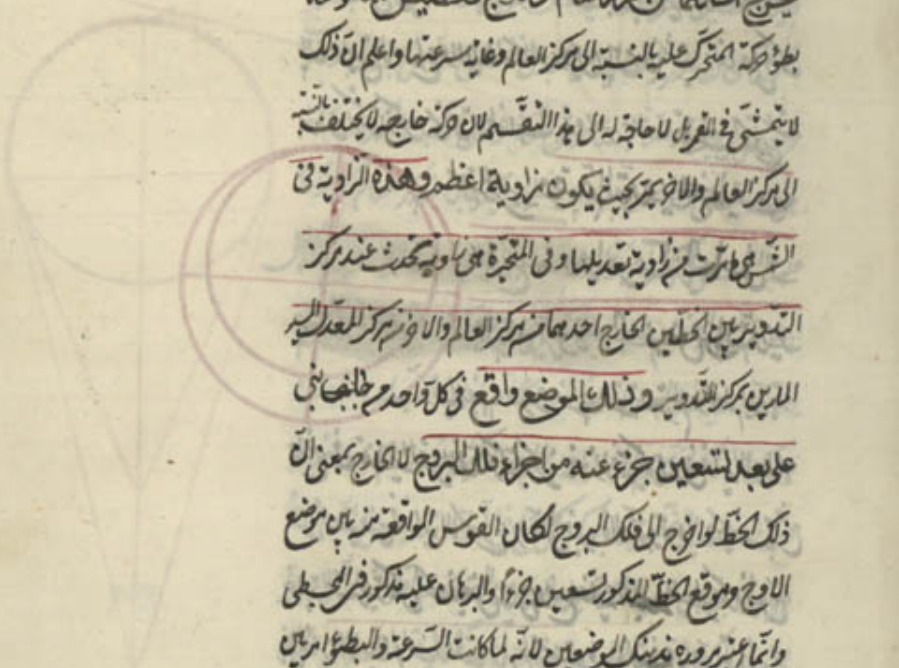 بطؤ حركة المتحرك عليه بالنسبة الى مركز العالم وغاية سرعتها واعلم ان ذلك
لا يتمشى في القمر بل لا حاجة له الى هذا التقسيم لان حركة خارجه لا يختلف بالنسبة
الى مركز العالم والاخر يمر بحيث يكون زاوية اعظم وهذه الزاوية في
الشمس هي زاوية تعديلها وفى المتحيرة هي زاوية تحدث عند مركز
التدوير بين الخطين الخارج احدهما من مركز العالم والاخر من مركز المعدل المسير
المارين بمركز التدوير وذلك الموضع واقع في كل واحد من
على بعد تسعين جزء عنه من اجزاء فلك البروج لا الخارج بمعنى ان
ذلك الخط لو اخرج الى فلك البروج لكان القوس الواقعة منه بين موضع
الاوج وموقع الخط المذكور تسعين جزءا والبرهان عليه مذكور في المجسطى
وانما عند مروره بذينك الموضعين لانه لما كانت السرعة والبطؤ امرين